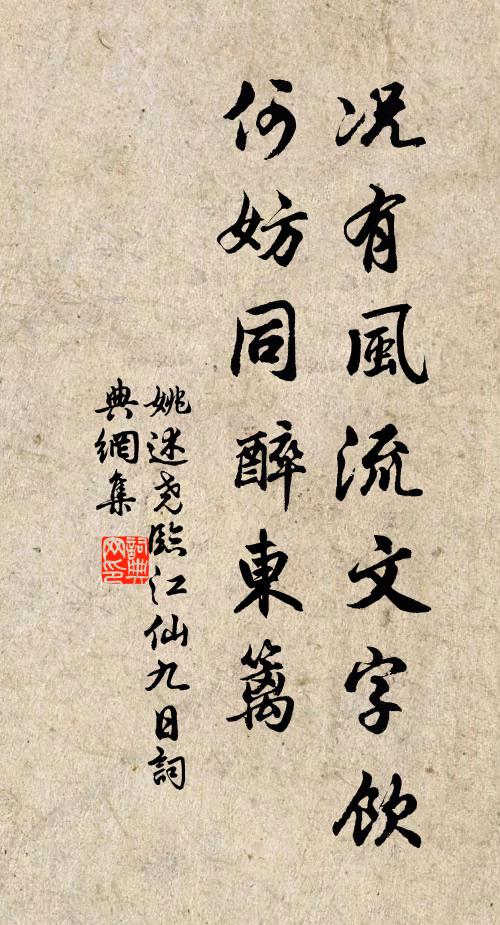 况有風流文字飲
何妨同醉東籬
姚述堯臨江仙九日詞
典網集
詞典網印